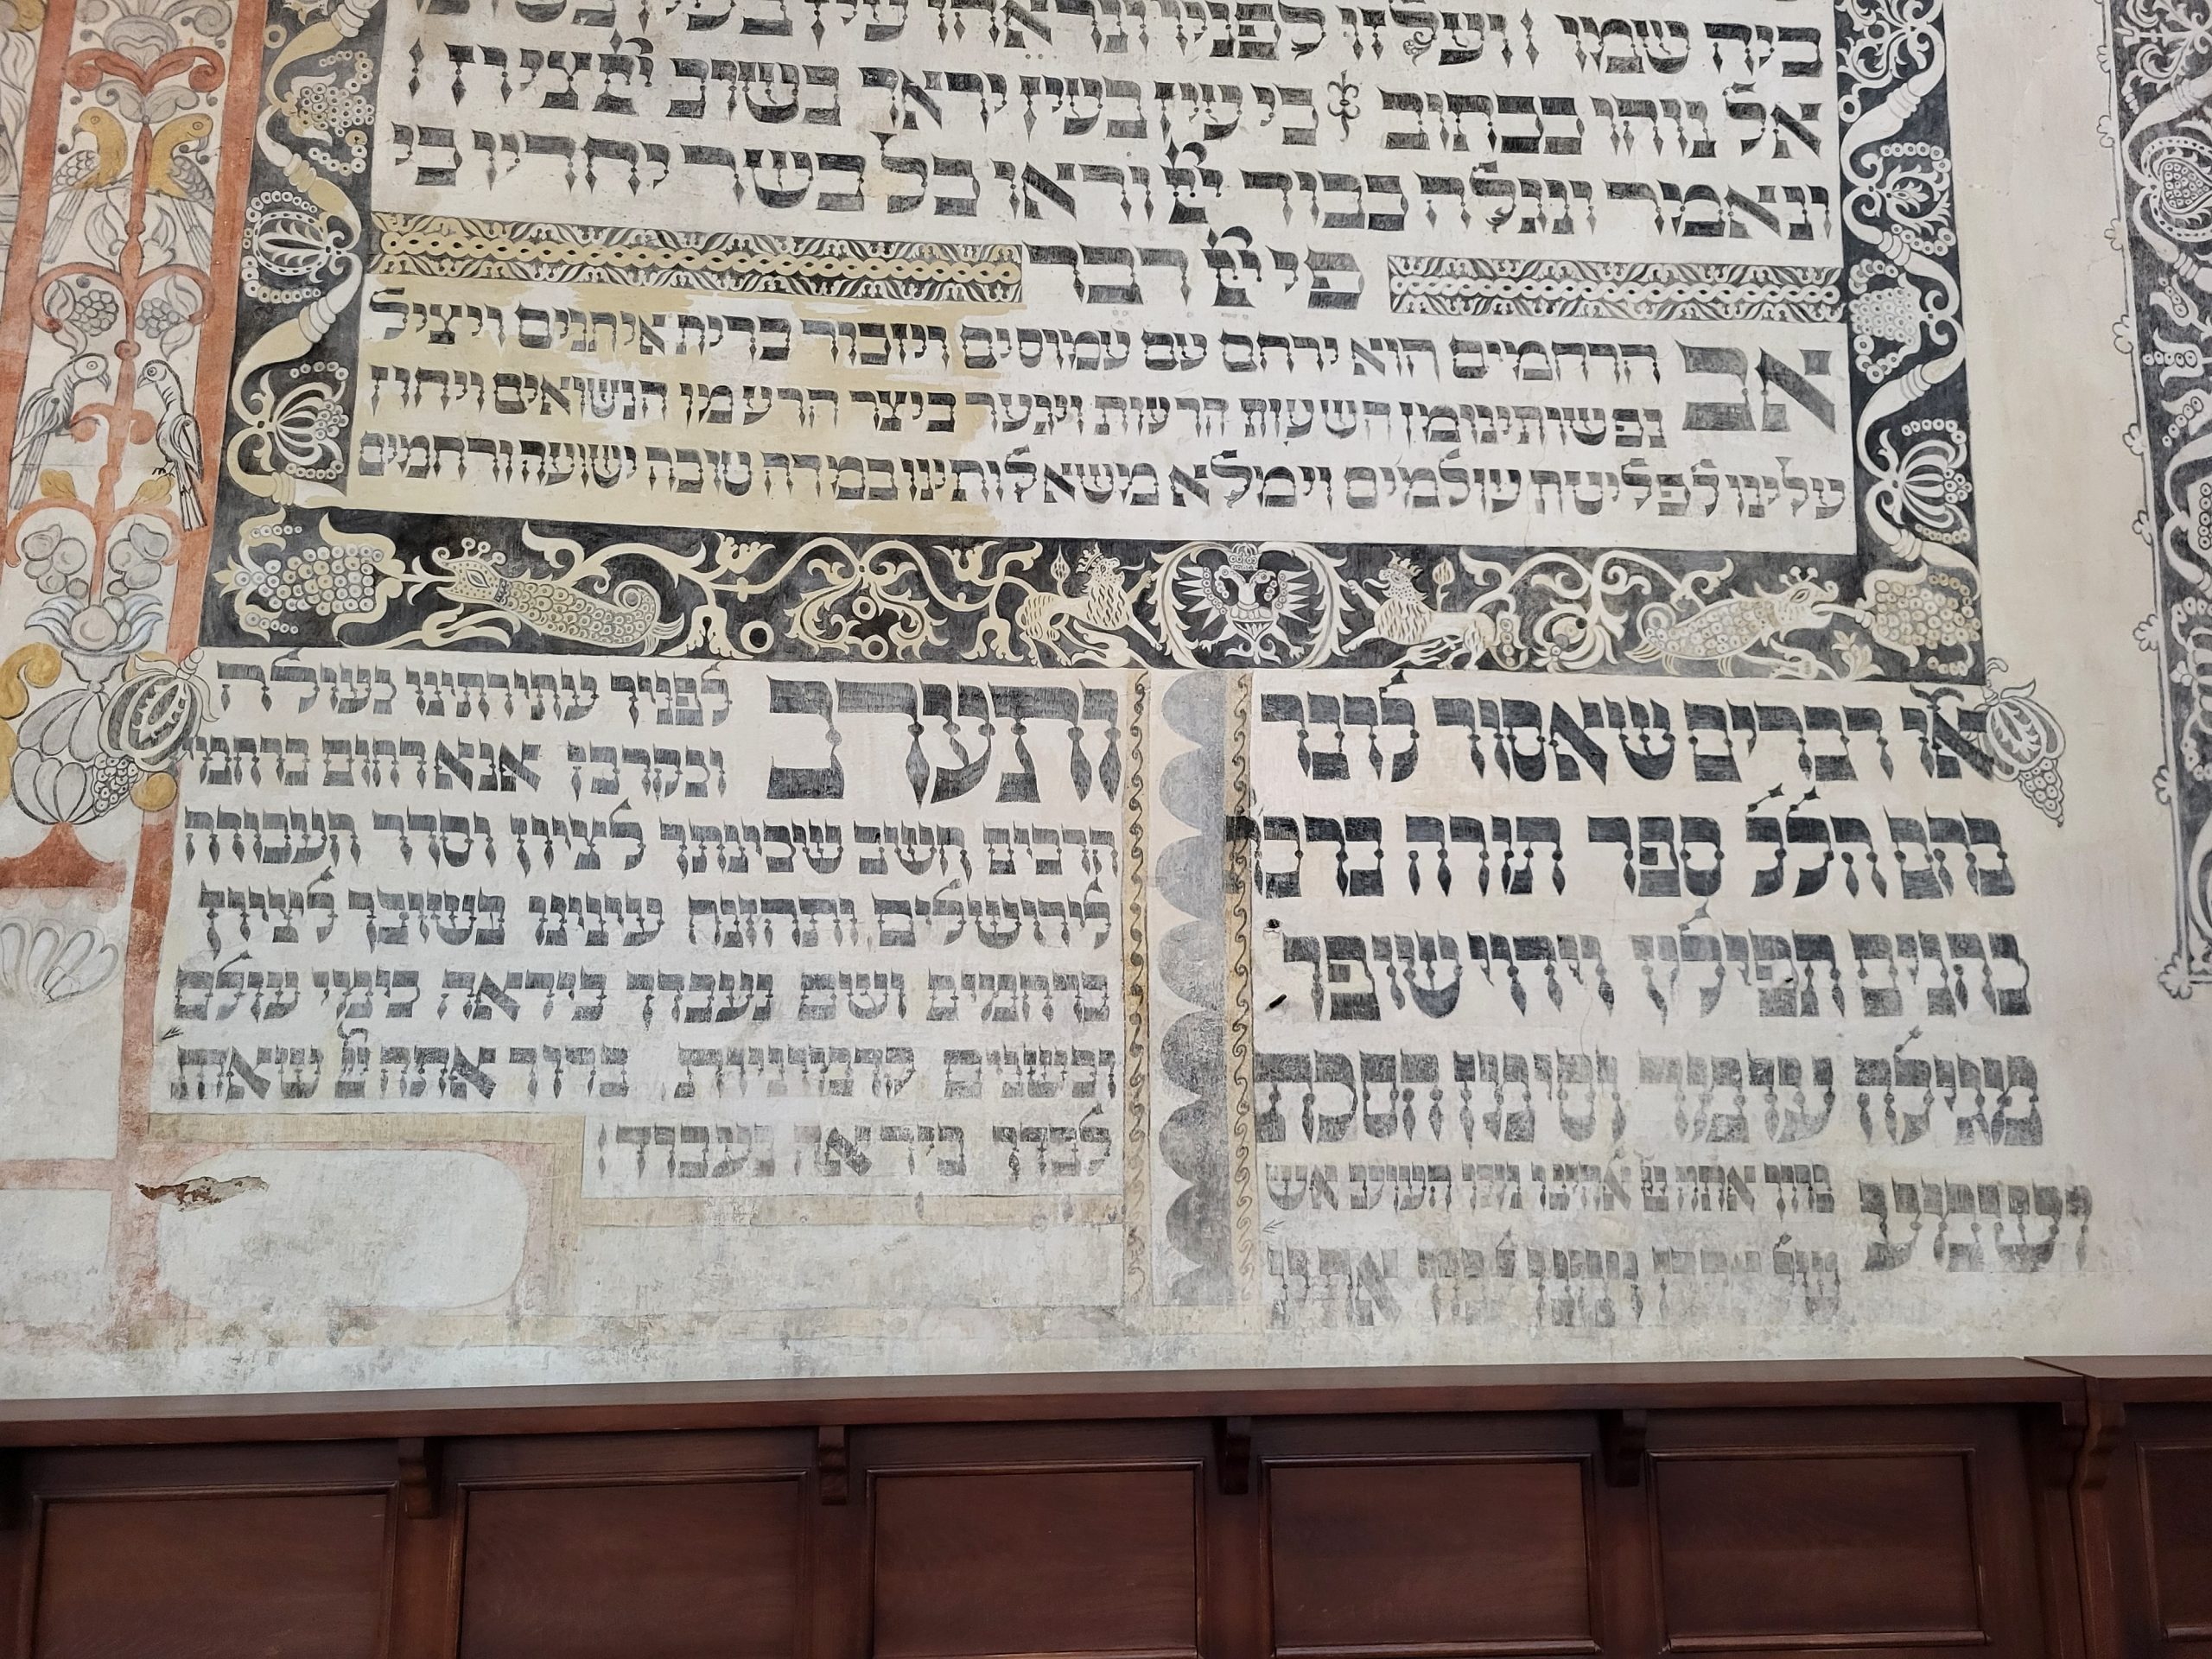 בית שמו ועלזו לפניו ונראהו עין בעין בשובו
אל נוהו ככתוב כי עין בעין יראו בשוב יי ציון
ונאמר ונגלה כבוד יי וראו כל בשר יחדיו כי
פי יי דבר
אב הרחמים הוא ירחם עם עמוסים ויזכור ברית איתנים ויציל
נפשותינו מן השעות הרעות ויגער ביצר הרע מן הנשואים ויחון
עלינו לפליטת עולמים וימלא משאלותינו במדה טובה ישועה ורחמים
אלו דברים שאסור לדבר
בהם הלל ספר תורה ברכת
כהנים תפילין וידוי שופר
מגילה עומר ושימין הסכת
ושמע ברוך אתה יי אלהינו
ותערב לפניך עתירתינו כעולה
וכקרבן אנא רחום ברחמיך
הרבים השב שכינתך לציון וסדר העבודה
לירושלים ותחזנה עינינו בשובך לציון
ברחמים ושם נעבדך ביראה כימי עולם
וכשנים קדמוניות ברוך אתה יי שאתה
לבדך ביראה נעבוד